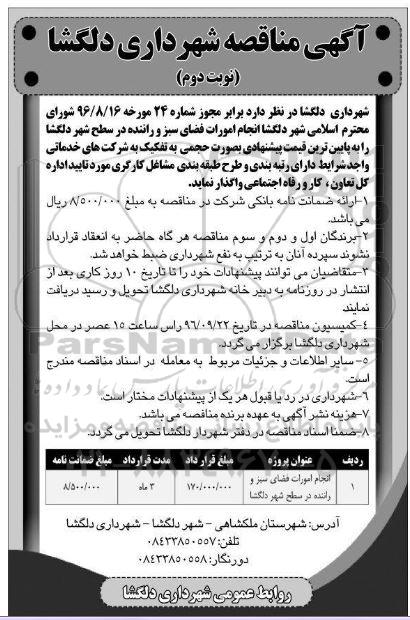 آگهی مناقصه شهرداری دلگشا
(نوبت دوم)
شهرداری دلگشا در نظر دارد برابر مجوز شماره ۲۴ مورخه ۹۶/۸/۱۶ شورای
محترم اسلامی شهر دلگشا انجام امورات فضای سبز و راننده در سطح شهر دلگشا
را به پایین ترین قیمت پیشنهادی بصورت حجمی به تفکیک به شرکت های خدماتی
واجد شرایط دارای رتبه بندی و طرح طبقه بندی مشاغل کارگری مورد تایید اداره
کل تعاون ، کار و رفاه اجتماعی واگذار نماید.
۱-ارائه ضمانت نامه بانکی شرکت در مناقصه به مبلغ ۸/۵۰۰/۰۰۰ ریال
می باشد.
۲-برندگان اول و دوم و سوم مناقصه هر گاه حاضر به انعقاد قرارداد
نشوند سپرده آنان به ترتیب به نفع شهرداری ضبط خواهد شد.
۳-متقاضیان می توانند پیشنهادات خود را تا تاریخ ۱۰ روز کاری بعد از
انتشار در روزنامه به دبیر خانه شهرداری دلگشا تحویل و رسید دریافت
نمایند.
۴-کمیسیون مناقصه در تاریخ ۹۶/۰۹/۲۲ راس ساعت ۱۵ عصر در محل
شهرداری دلگشا برگزار می گردد.
۵-سایر اطلاعات و جزئیات مربوط به معامله در اسناد مناقصه مندرج
است.
۶-شهرداری در رد یا قبول هر یک از پیشنهادات مختار است.
۷-هزینه نشر آگهی به عهده برنده مناقصه می باشد.
۸-ضمنا اسناد مناقصه در دفتر شهردار دلگشا تحویل می گردد.
ردیف عنوان پروژه مبلغ قرار داد مدت قرارداد مبلغ ضمانت نامه
۱ انجام امورات فضای سبز و راننده در سطح شهر دلگشا ۱۷۰/۰۰۰/۰۰۰ ۳ ماه ۸/۵۰۰/۰۰۰
آدرس: شهرستان ملکشاهی - شهر دلگشا - شهرداری دلگشا
تلفن: ۰۸۴۳۳۸۵۰۵۵۷
دورنگار: ۰۸۴۳۳۸۵۰۵۵۸
روابط عمومی شهرداری دلگشا